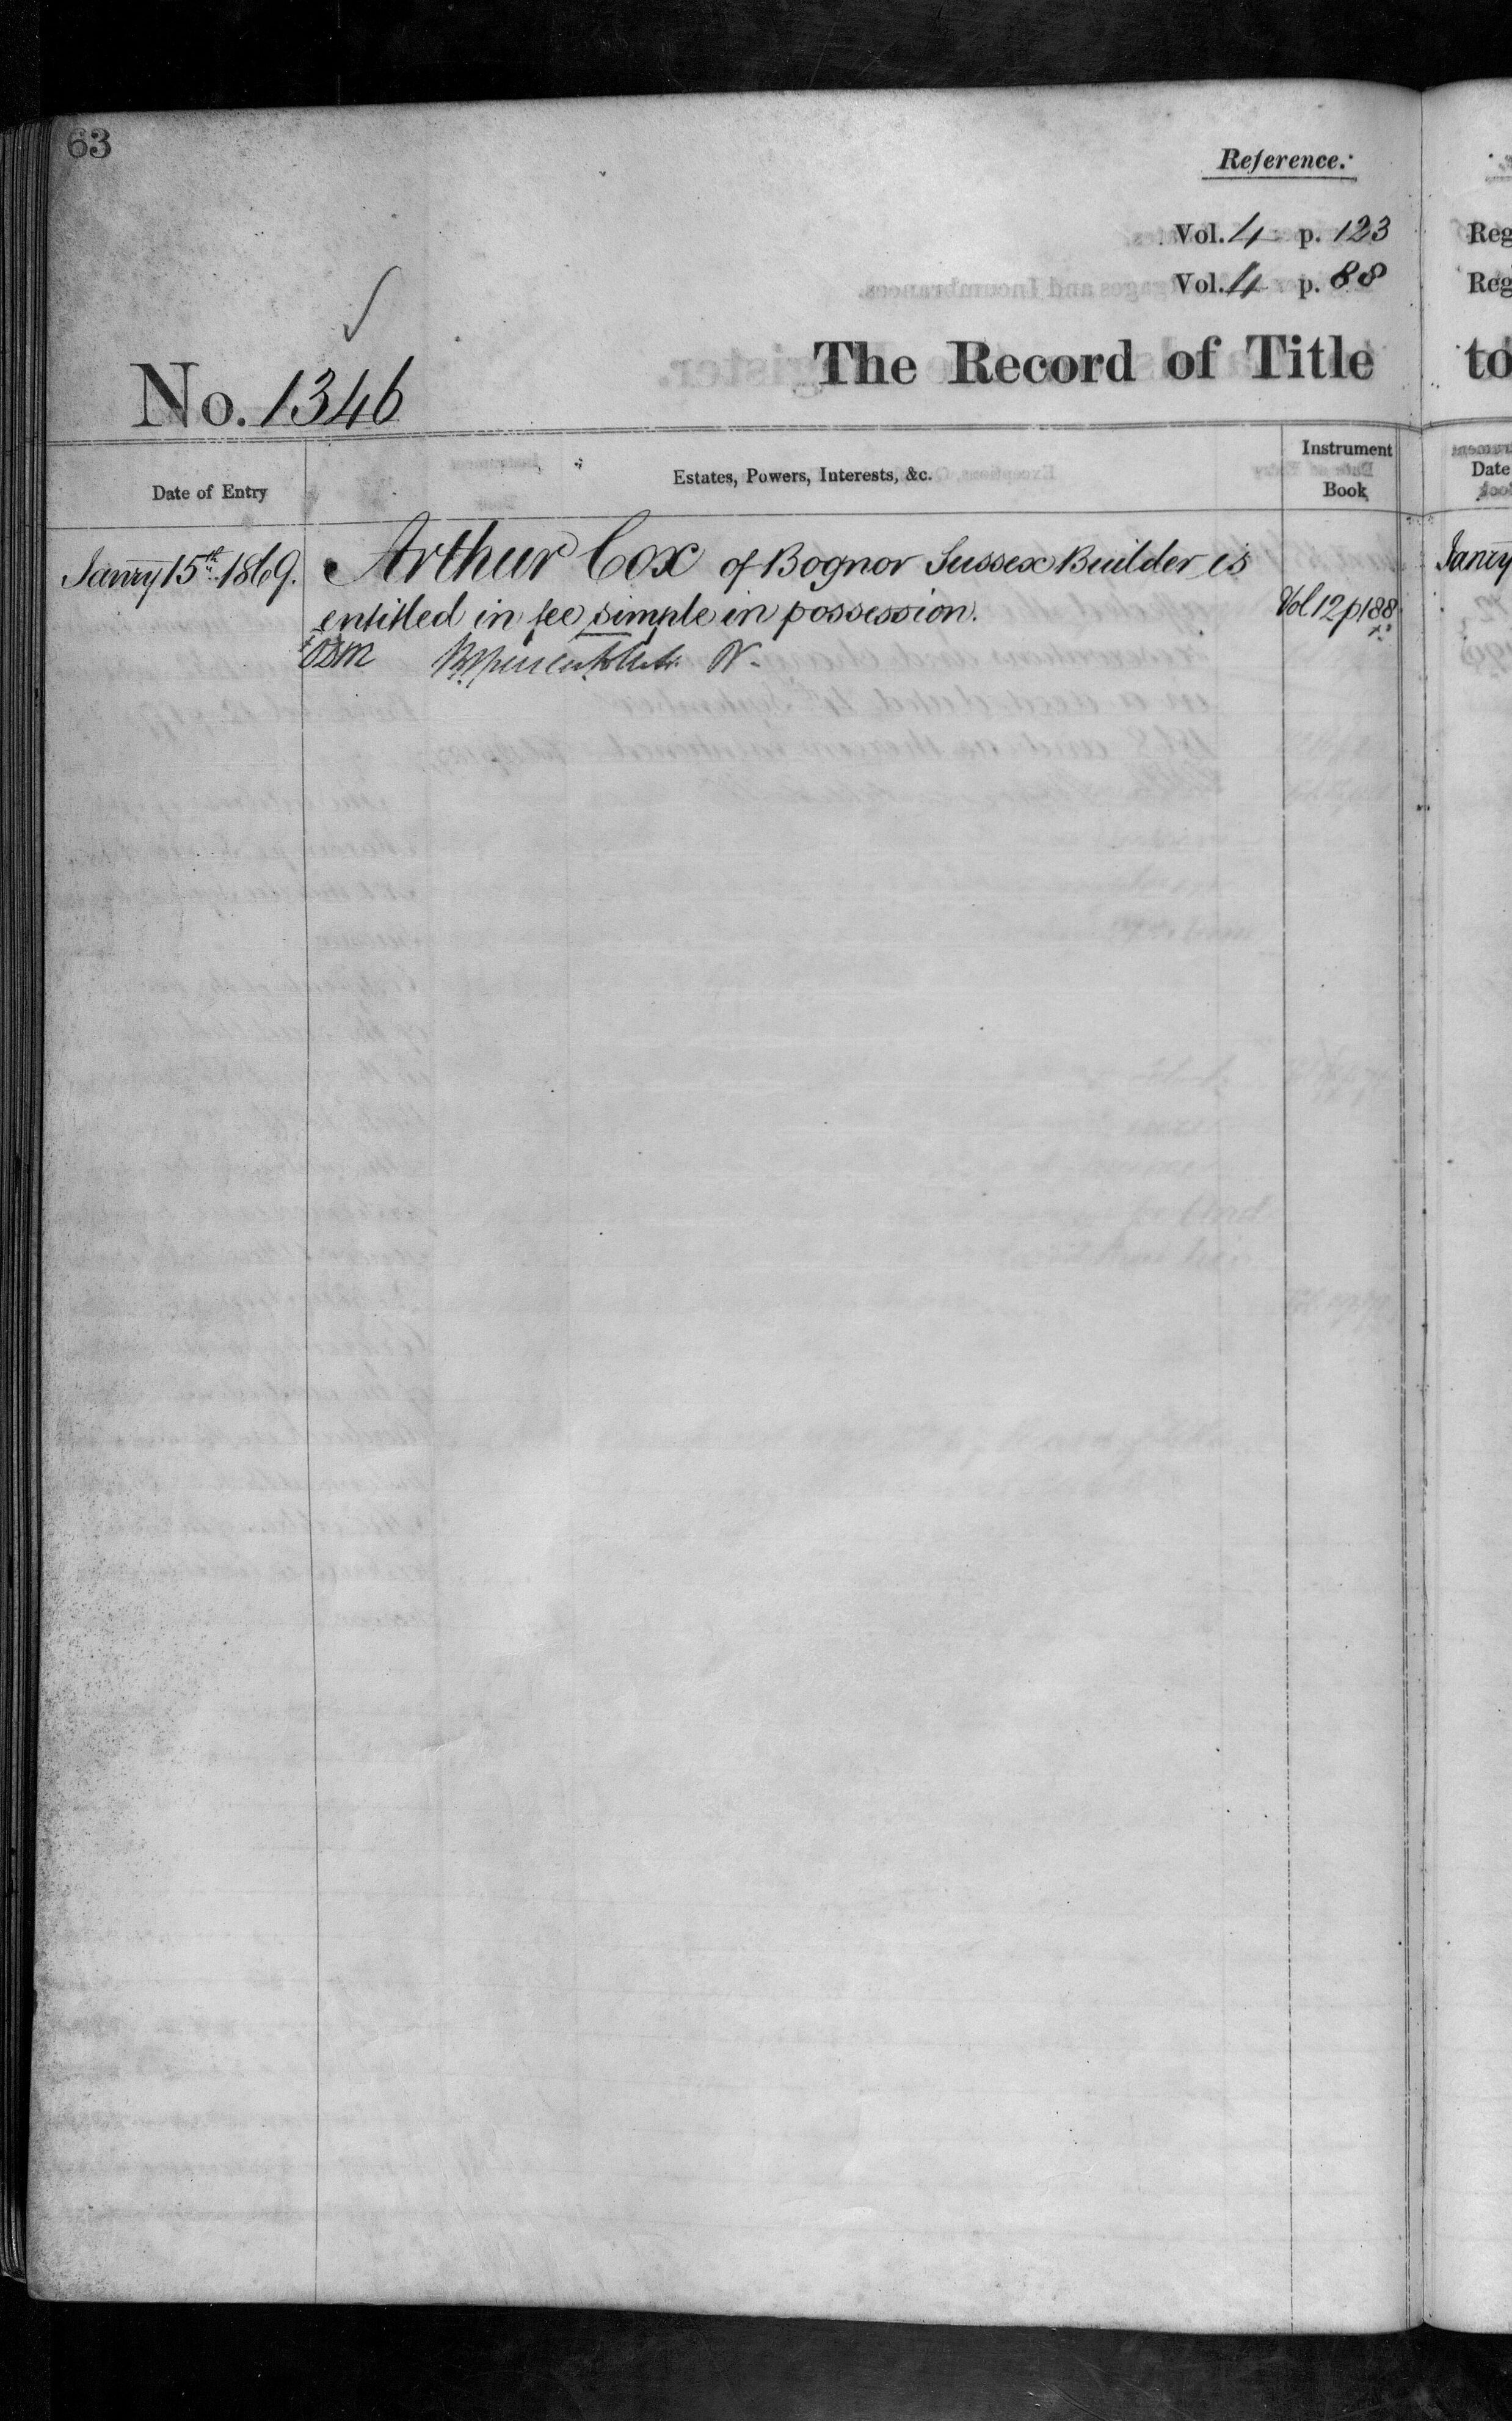 63
Reference.
Vol. 4 p. 123
Vol. 4 p. 88
No. 1346
The Record of Title
Date of Entry
Estates, Powers, Interests, &c.
Instrument Book
Janry 15th 1869.
Arthur Cox of Bognor Sussex Builder is
entitled in fee simple in possession.
Vol 12 p 188
Reg
Reg
to
Date
Janry